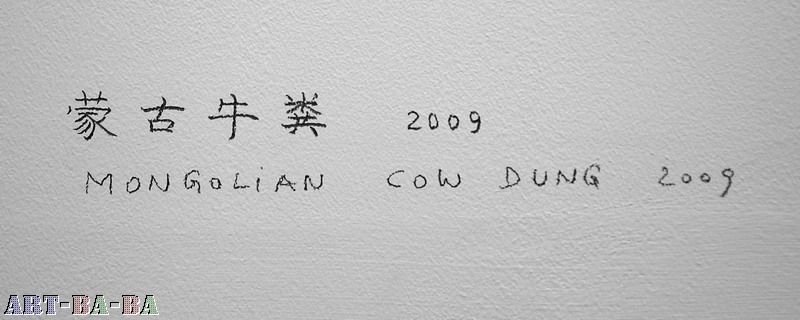 蒙古牛粪 2009
MONGOLiAN COW DUNG 2009
ART-BA-BA